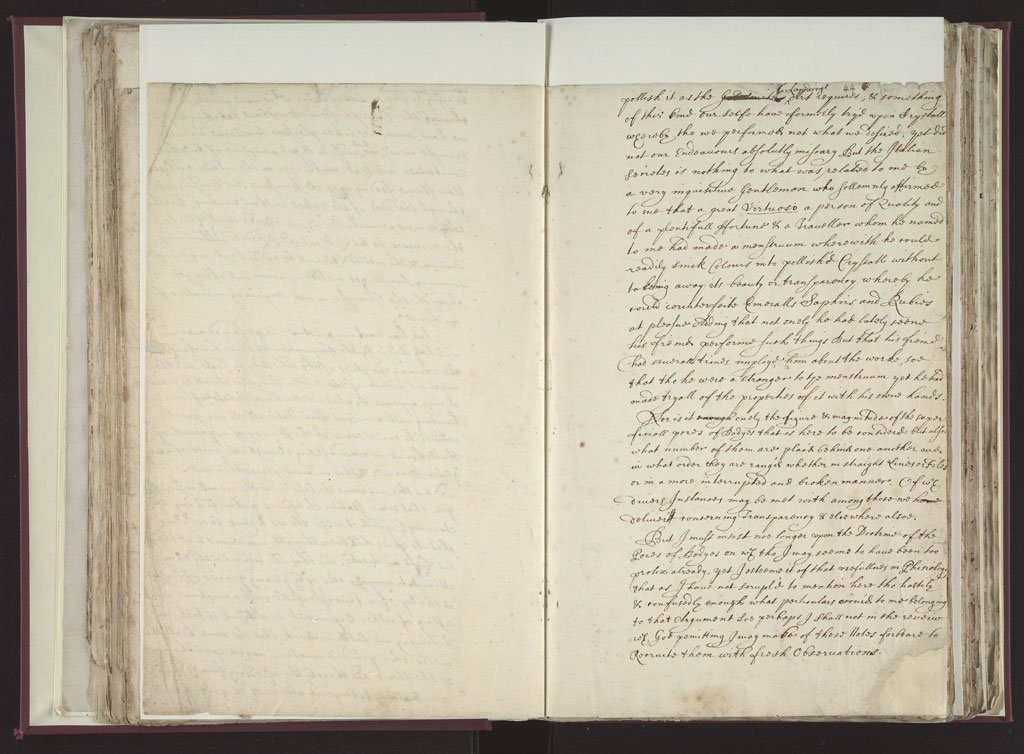 Lapidaryes 44
pollish it as the Art requires, & something
of this kind our selfe have formerly try'd upon Crystall
whereby tho we performed not what we desired, yet did
not our Endeavours absolutly miscary But the Italian
secretes is nothing to what was related to me by
a very inquisitive Gentleman who sollemnly affirmed
to me that a great Virtuoso a person of Quality and
of a plentifull ffortune & a Traveller whom he named
to me had made a menstruum wherewith he could
readily sinck Colours into pollish'd Crystall without
takeing away its beauty or transparency whereby he
could counterfeite Emeralls Saphirs and Rubies
at pleasure Adding that not onely he had lately seene
his freind performe such things But that his freind
had severall times imploy'd him about the worke, soe
that tho he were a stranger to the menstruum yet he had
made tryall of the properties of it with his owne hands.
Nor is it enough onely the figure & magnitudes of the super
ficiall pores of Bodyes that is here to be considerd but also
what number of them are plac'd behind one another and
in what order they are rang'd whether in straight Lines or files
or in a more interrupted and broken manner. Of wch
divers Instances may be met with among those we have
deliver'd concerning Transparency & elsewhere alsoe.
But I must insist noe longer upon the Doctrine of the
Pores of Bodyes on wch tho I may seeme to have been too
prolix already, yet I esteeme it of that usefullnes in Phisiology
that as I have not scrupl'd to mention here tho hastily
& confusedly enough what perticulars occurr'd to me belonging
to that Argument soe perhaps I shall not in the review
wch God permiting I may make of these Notes forbeare to
Recruite them with fresh Observations.